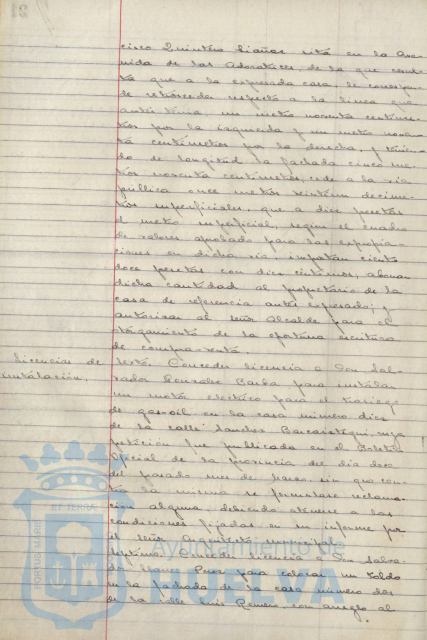 cisco Quintero Liañez sita en la Ave-
nida de las Adoratrices, de la que resul-
ta que a la expresada casa, le corresponde
de retroceder respecto a la línea que
antes tenía, un metro noventa centíme-
tros por la izquierda y un metro noven-
ta centímetros por la derecha, y tenien-
do de longitud la fachada cinco me-
tros noventa centímetros, cede a la vía
pública once metros veintiun decíme-
tros superficiales, que a diez pesetas
el metro superficial, según el cuadro
de valores aprobado para las expropia-
ciones en dicha vía importan ciento
doce pesetas con diez céntimos, abonar
dicha cantidad al propietario de la
casa de referencia antes expresado; y
autorizar al señor Alcalde para el
otorgamiento de la oportuna escritura
de compra-venta.
Licencias de
instalación.
Sexto. Conceder licencia a Don Sal-
vador Barba para instalar
un motor electrico para el trasiego
de gas-oil en la casa número diez
de la calle Sanchez Barcaiztegui, cuya
petición fue publicada en el Boletín
Oficial de la provincia del día doce
del pasado mes de Marzo sin que con-
tra la misma se formulase reclama-
ción alguna, debiendo atenerse a las
condiciones fijadas en su informe por
el señor Arquitecto municipal.
Septimo. Conceder licencia a Don Salva-
dor Llanes Perez para colocar un toldo
en la fachada de la casa número dos
de la calle Luis Romero con arreglo al
Ayuntamiento de
HUELVA